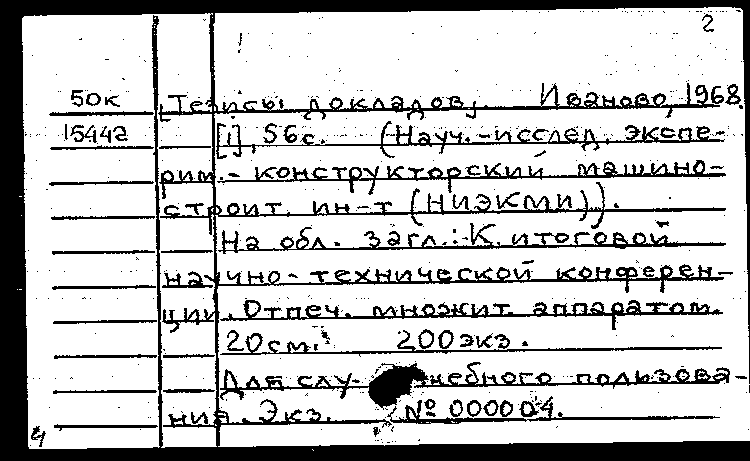 2
50к [Тезисы докладов]. Иваново, 1968.
15442 [1], 56с. (Науч.-исслед. экспе-
рим.-конструкторский машино-
строит. ин-т (НИЭКМИ)).
На обл. загл.: К итоговой
научно-технической конферен-
ции. Отпеч. множит. аппаратом.
20см. 200экз.
Для слу- жебного пользова-
ния. Экз. № 000004.